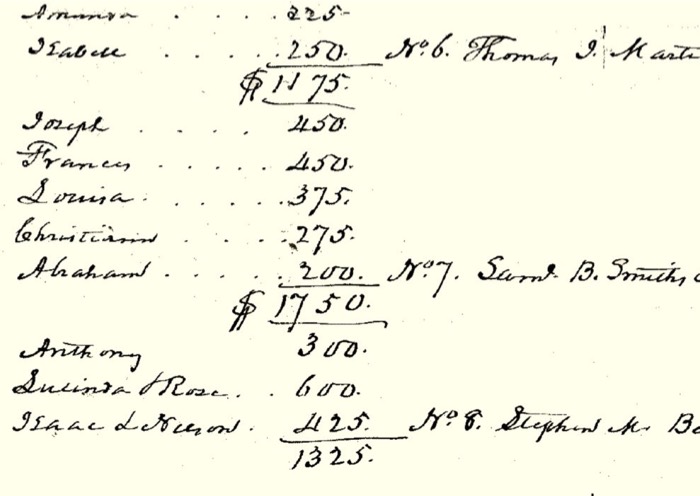 Amanda . . . . 225
Isabell . . . . . 250. No. 6. Thomas I. Marti
$1175.
Joseph . . . . 450.
Frances . . . . 450.
Louisa . . . . . 375.
Christiann . . . . 275.
Abraham . . . . 200. No. 7. Saml. B. Smiths
$1750.
Anthony 300.
Lucinda & Rose . . 600.
Isaac & Nelson . 425. No. 8. Stephen M. Bo
1325.